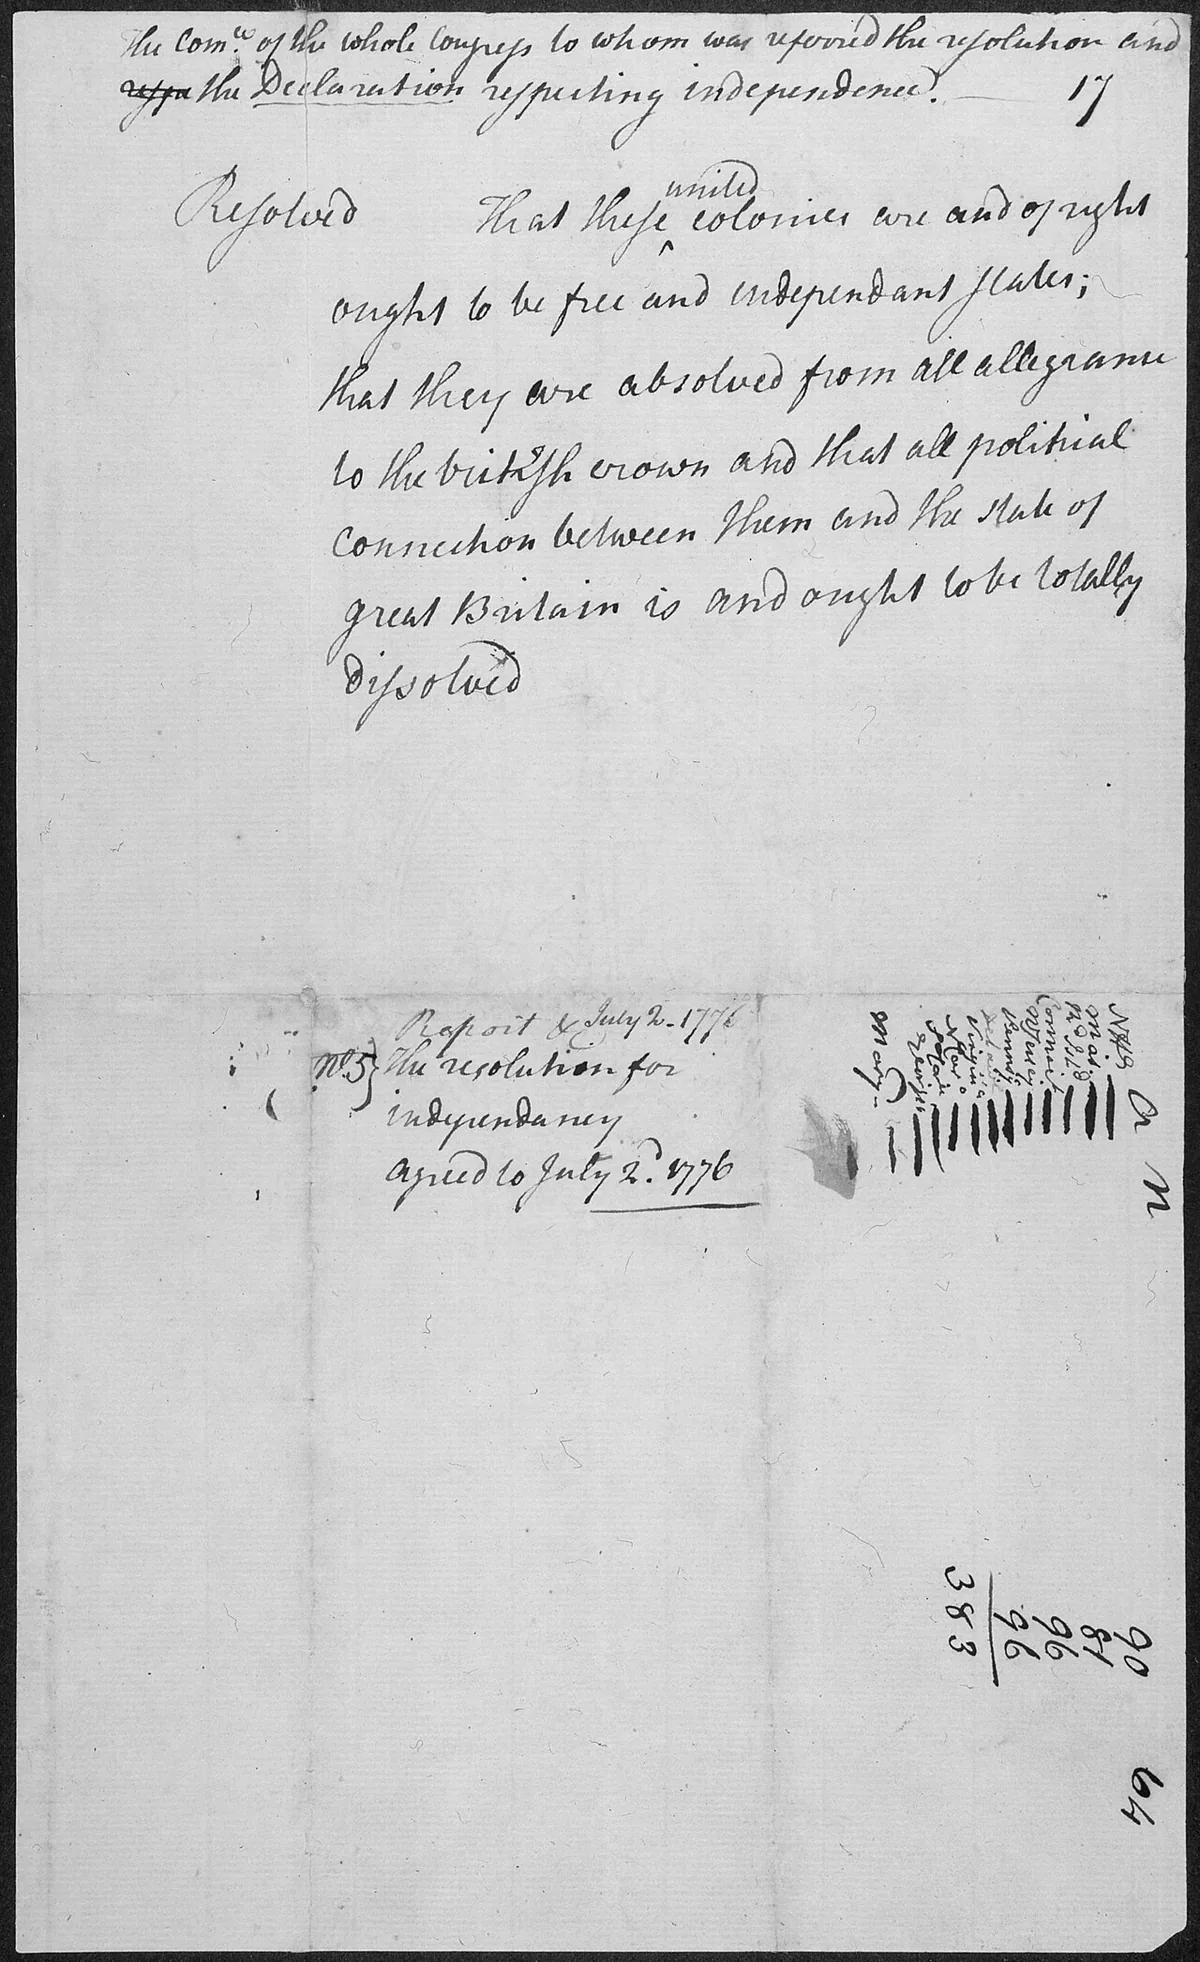 The Com.ee of the whole Congress to whom was referred the resolution and
the Declaration respecting independence. — 17
united
Resolved That these ^ colonies are and of right
ought to be free and independant states;
that they are absolved from all allegiance
to the british crown and that all political
connection between them and the state of
great Britain is and ought to be totally
dissolved
Report & July 2 - 1776
No. 5} The resolution for
independancy
agreed to July 2d. 1776
N H
mas
R Isld
Connect
Jersey
Pennsy
Virginia
N Car
S Car
Georgia
Mary
90
81
96
96
383
64